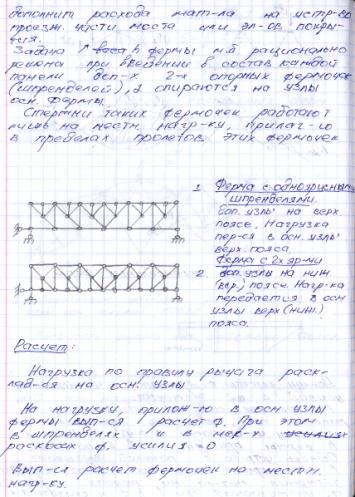 дополнит расхода мат-ла на устр-во
проезж. части моста или эл-ов покры-
тия.
Задача ↑ веса фермы м.б рационально
решена при введении в состав каждой
панели доп-х 2-х опорных фермочек
(шпренделей), опираются на узлы
осн. фермы.
Стержни таких фермочек работают
лишь на местн. нагр-ку, прилаг-ю
в пределах пролетов этих фермочек
1. Ферма с одноярусными
шпренделями.
Доп. узлы на верх.
поясе. Нагрузка
пер-ся в осн. узлы
верх. пояса.
Ферма с 2х яр-ми
2. Доп. узлы на ниж
(вер.) поясе. Нагр-ка
передается в осн
узлы верх (ниж.)
пояса.
Расчет:
Нагрузка по правилу рычага раск-
лад-ся на осн. узлы
На нагрузку, прилож-ю в осн. узлы
фермы вып-ся расчет ф. При этом
в шпренделях и в нек-х
раскосах ф. усилия = 0
Вып-ся расчет фермочек на местн.
нагр-ку.